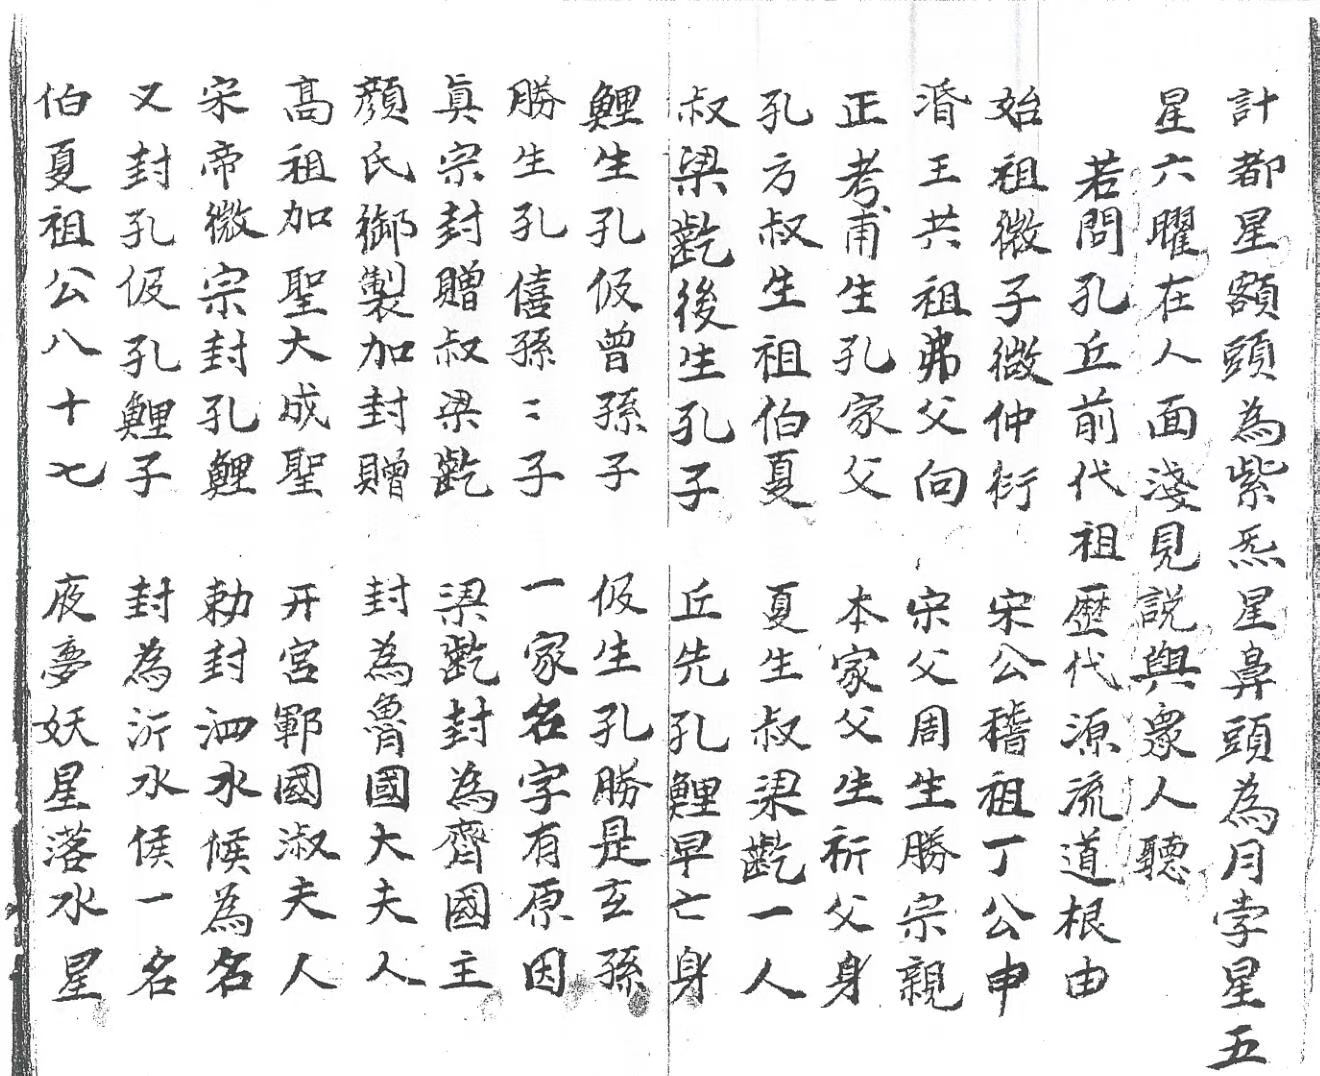 計都星額頭為紫炁星鼻頭為月孛星五
星六曜在人面淺見說與衆人聽
若問孔丘前代祖歷代源流道根由
始祖微子微仲衍 宋公稽祖丁公申
湣王共祖弗父向 宋父周生勝宗親
正考甫生孔家父 本家父生祈父身
孔方叔生祖伯夏 夏生叔梁齕一人
叔梁齕後生孔子 丘先孔鯉早亡身
鯉生孔伋曾孫子 伋生孔勝是玄孫
勝生孔僖孫〻子 一家名字有原因
真宗封贈叔梁齕 梁齕封為齊國主
顏氏御製加封贈 封為魯國大夫人
高祖加聖大成聖 开宮鄆國淑夫人
宋帝微宗封孔鯉 勅封泗水候為名
又封孔伋孔鯉子 封為沂水侯一名
伯夏祖公八十七 夜夢妖星落水星